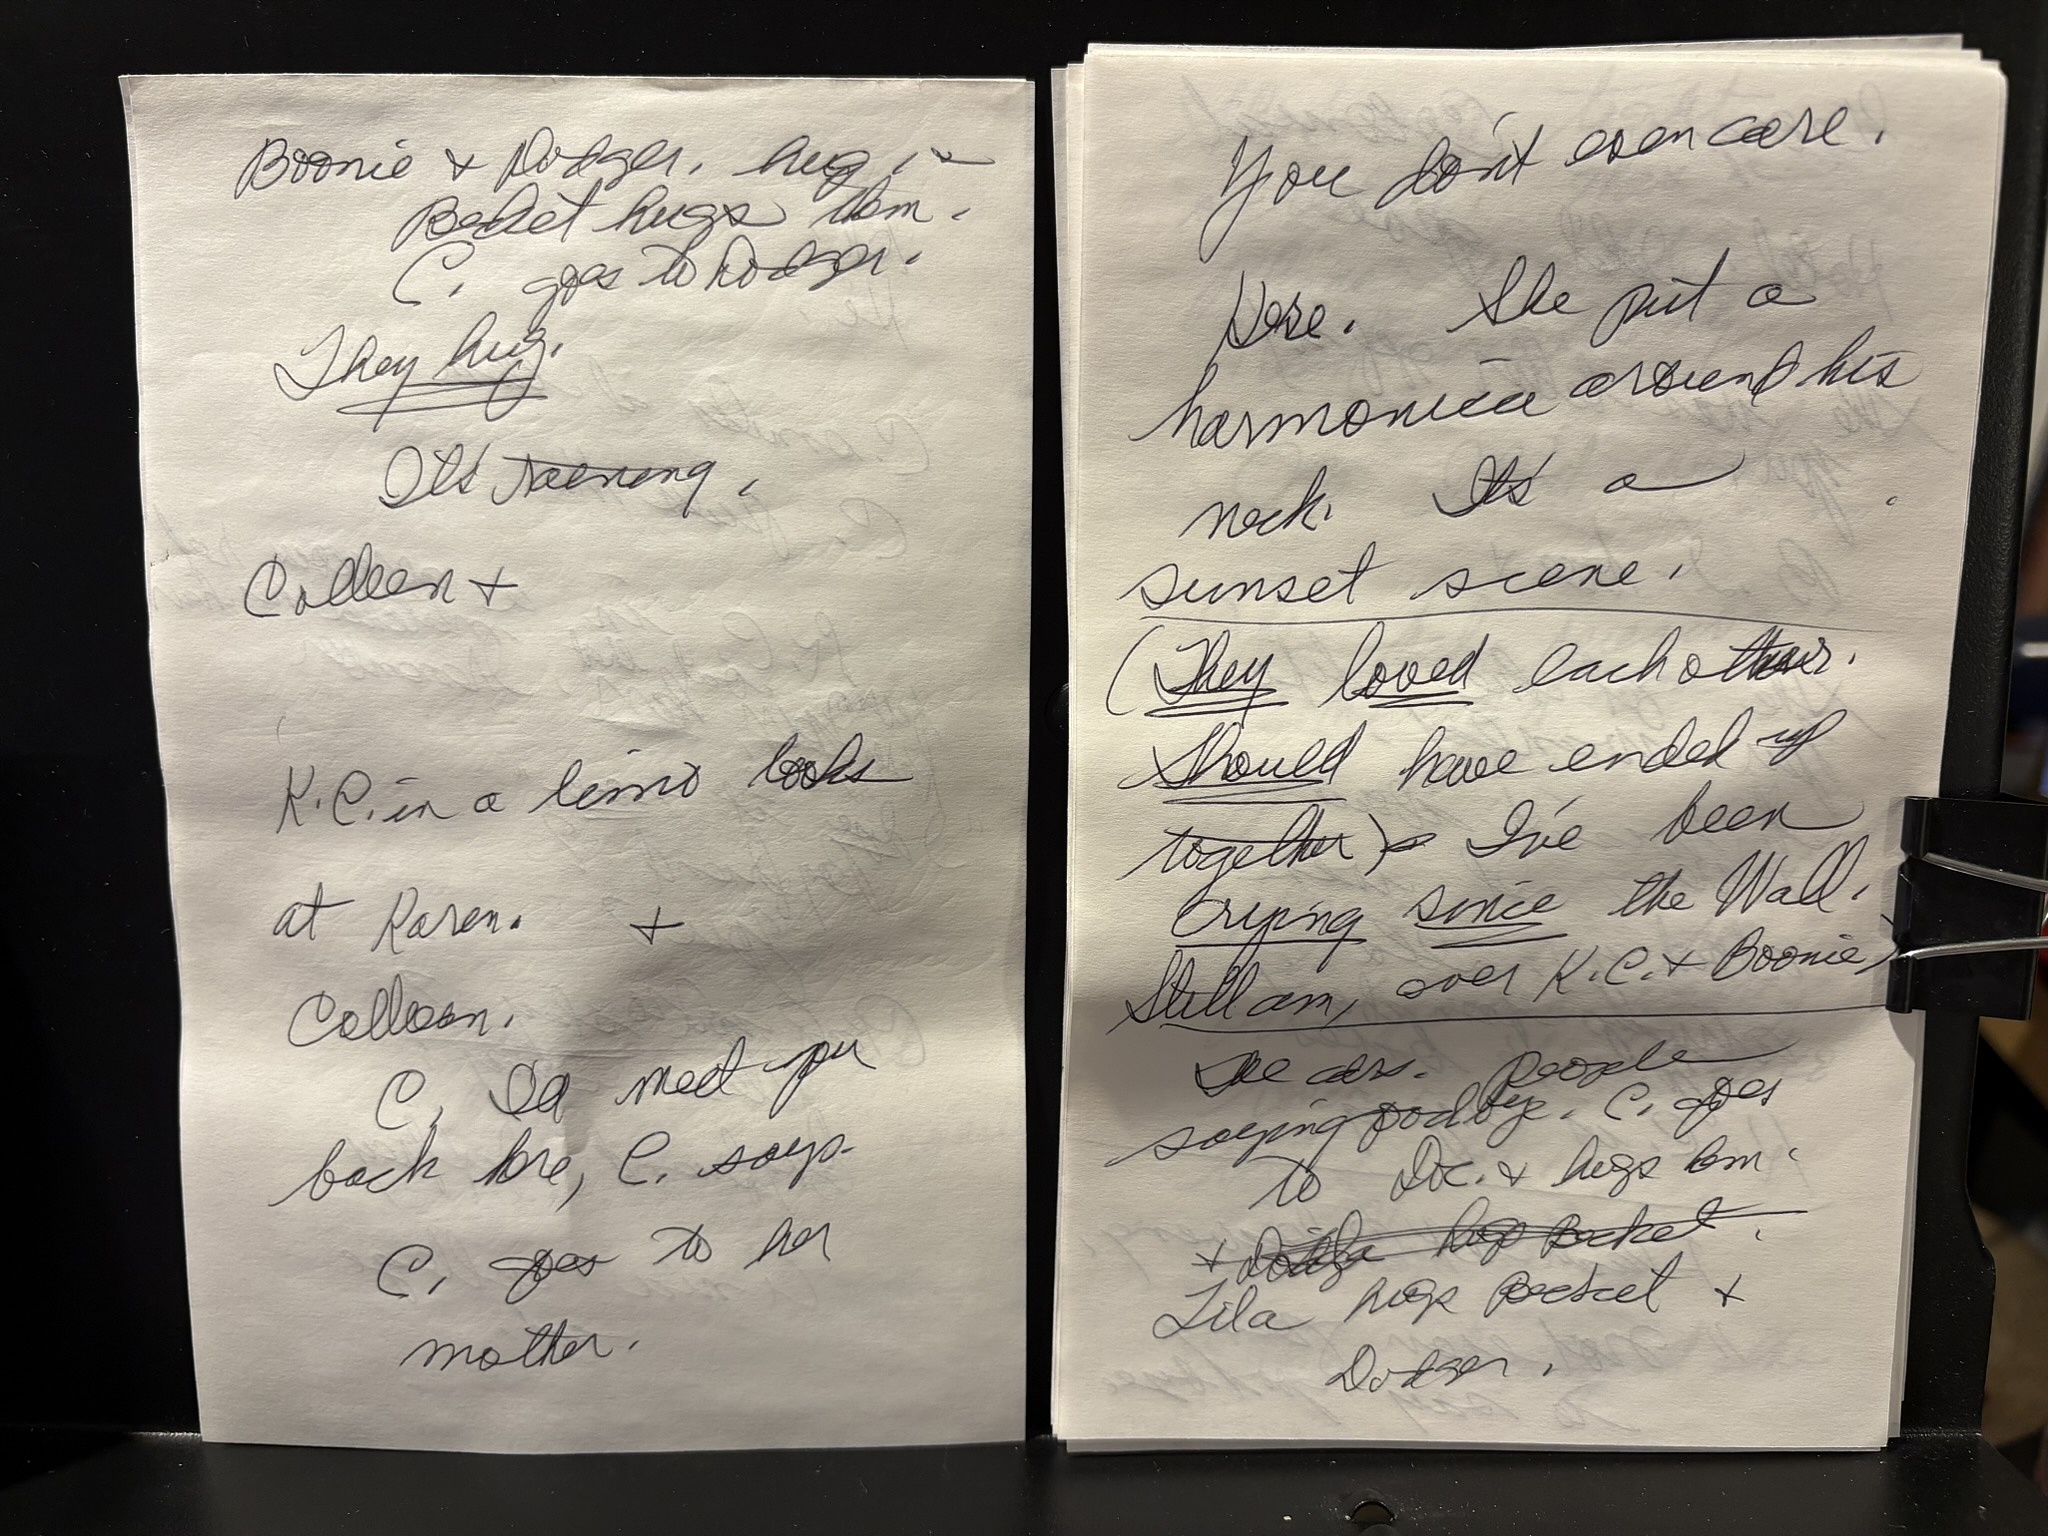 Boonie + Dodger. hug.
Becket hugs him.
C. goes to Dodger.
They hug.
It's raining.
Colleen +
K.C. in a limo looks
at Karen. +
Colleen.
C. I'd meet you
back here, C. says.
C. goes to her
mother.
You don't even care.
Here. She put a
harmonica around his
neck. It's a
sunset scene.
(They loved each other.
Should have ended up
together) I've been
crying since the Wall.
Still am, over K.C. + Boonie)
People
saying goodbye. C. goes
to Doc. + hugs him.
+ hugs Becket.
Lila hugs Becket +
Dodger.